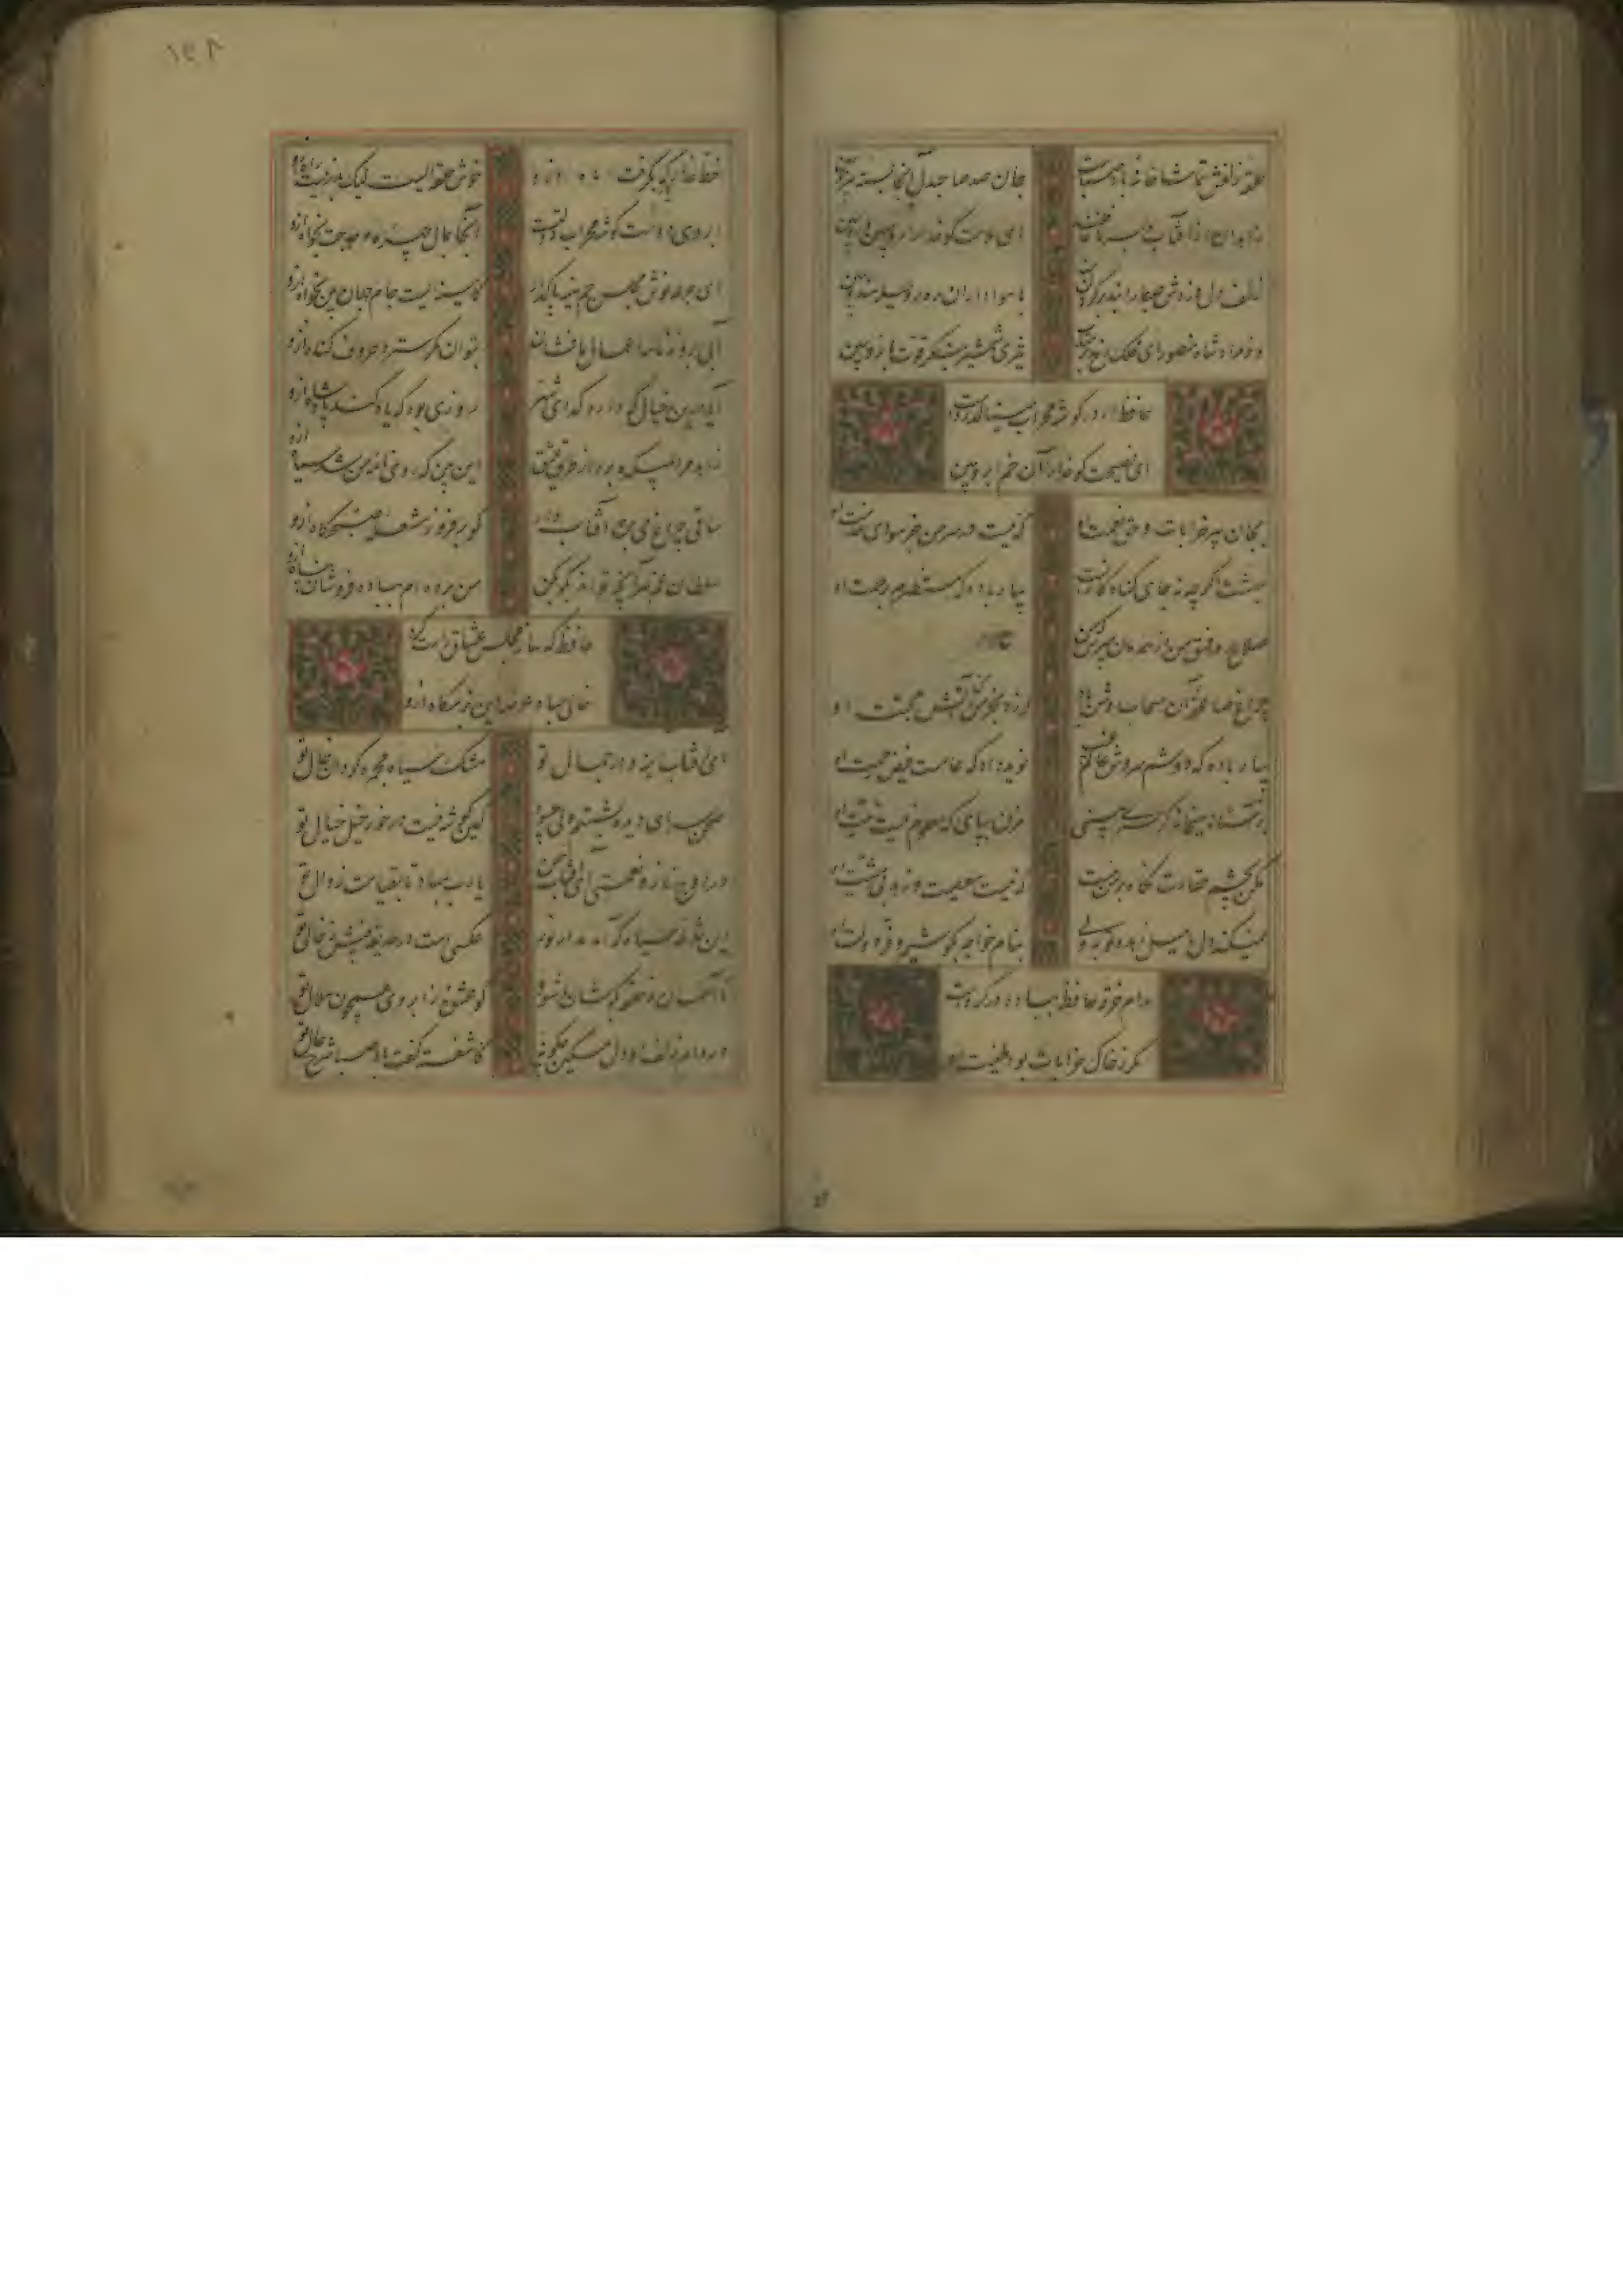 حلقه زلفش تماشاخانه باد صباست جان صد صاحبدل آنجا بسته
زاهدان از آفتاب
ای ملامت گو خدا را رو مبین
زلف دل دزدش صبا را بند بر گردن با هواداران رهرو حیله هندو ببین
از مراد شاه منصور ای فلک تیزی شمشیر بنگر قوت بازو ببین
حافظ ار در گوشه محراب مینالد رواست
ای نصیحت گو خدا را آن خم ابرو ببین
بجان پیر خرابات و حق نعمت او که نیست در سر من جز هوای خدمت او
بهشت اگر چه نه جای گناه کارانست بیار باده که مستظهرم برحمت او
چراغ صاعقه آن سحاب روشن باد که زد بخرمن ما آتش محبت او
بیار باده که دوشم سروش عالم غیب نوید داد که عامست فیض رحمت او
بر آستانه میخانه گر سری بینی مزن بپای که معلوم نیست نیت او
مکن بچشم حقارت نگاه بر من مست که نیست معصیت و زهد بی مشیت او
نمیکند دل من میل زهد و توبه ولی بنام خواجه بکوشیم و فر دولت او
مدام خرقه حافظ بباده در گروست
مگر ز خاک خرابات بود طینت او
خط عذار یار که بگرفت ماه ازو خوش حلقه ایست لیک بدر نیست راه ازو
ابروی دوست گوشه محراب دولتست آنجا بمال چهره و حاجت بخواه ازو
ای جرعه نوش مجلس جم سینه پاک دار کآیینه ایست جام جهان بین که آه ازو
آبی بروزنامه اعمال ما فشان بتوان مگر سترد حروف گناه ازو
آیا درین خیال که دارد گدای شهر روزی بود که یاد کند پادشاه ازو
این بین که روی نامه من شد سیاه ازو
ساقی چراغ می بره آفتاب دار گو برفروز مشعله صبحگاه ازو
سلطان غم هر آنچه تواند بگو بکن من برده ام بباده فروشان پناه ازو
حافظ که ساز مجلس عشاق راست کرد
خالی مباد عرصه این بزمگاه ازو
ای آفتاب آینه دار جمال تو مشک سیاه مجمره گردان خال تو
صحن سرای دیده بشستم ولی چه سود کین گوشه نیست در خور خیل خیال تو
در اوج ناز و نعمتی ای آفتاب حسن یا رب مباد تا بقیامت زوال تو
این نقطه سیاه که آمد مدار نور عکسی است در حدیقه بینش ز خال تو
تا آسمان ز حلقه بگوشان ما شود کو عشوه ز ابروی همچون هلال تو
در دام زلفش ای دل مسکین چگونه کآشفته گفت باد صبا شرح حال تو